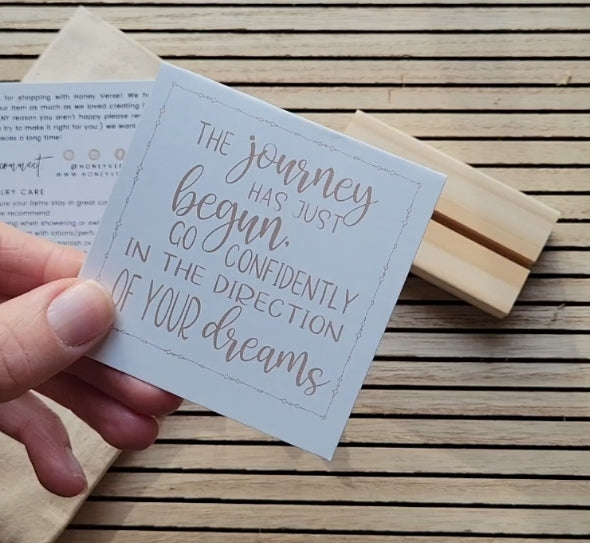 for shopping with Honey Verse! We
our item as much as we loved creating
ANY reason you aren't happy please
try to make it right for you:) we want
pieces a long time!
connect
@HONEYVER
WWW.HONEYV
CARE
sure your items stay in great
we recommend:
when showering or
with lotions/
THE journey
HAS JUST
begun.
GO CONFIDENTLY
IN THE DIRECTION
OF YOUR dreams